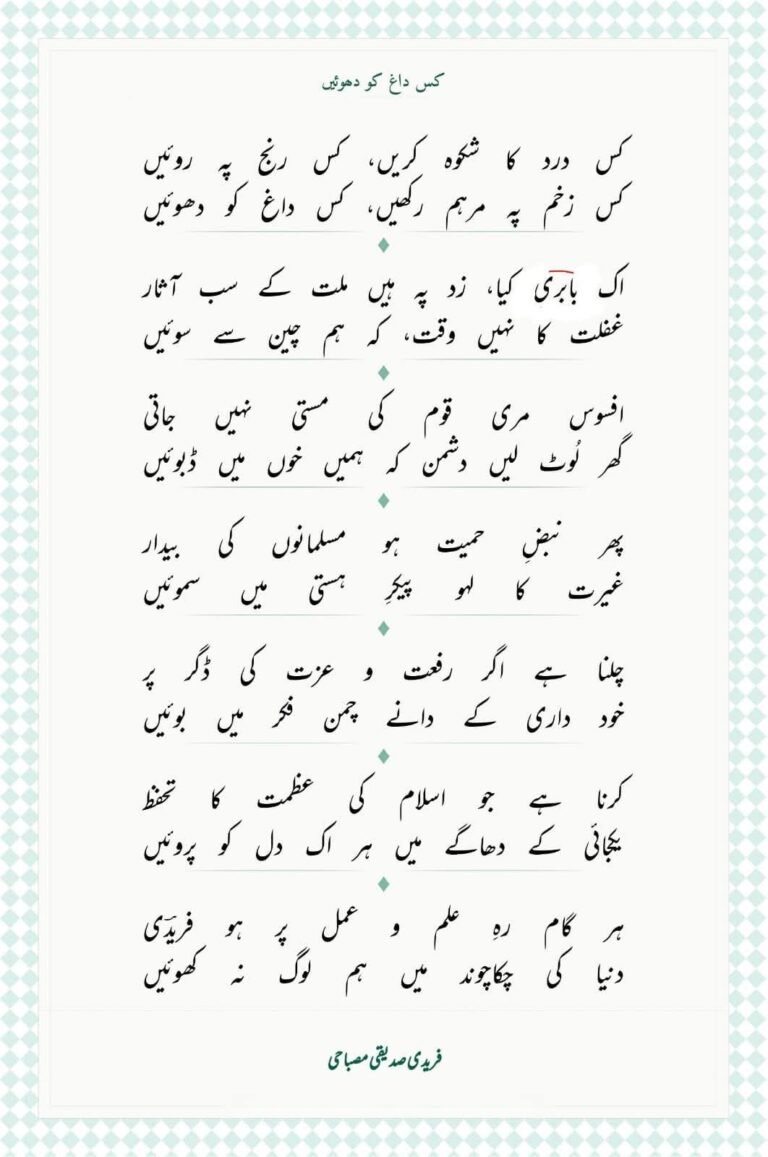 کس داغ کو دھوئیں
کس درد کا شکوہ کریں، کس رنج پہ روئیں
کس زخم پہ مرہم رکھیں، کس داغ کو دھوئیں
اک بابری کیا، زد پہ ہیں ملت کے سب آثار
غفلت کا نہیں وقت، کہ ہم چین سے سوئیں
افسوس مری قوم کی مستی نہیں جاتی
گھر لُوٹ لیں دشمن کہ ہمیں خوں میں ڈبوئیں
پھر نبضِ حمیت ہو مسلمانوں کی بیدار
غیرت کا لہو پیکرِ ہستی میں سموئیں
چلنا ہے اگر رفعت و عزت کی ڈگر پر
خود داری کے دانے چمن فکر میں بوئیں
کرنا ہے جو اسلام کی عظمت کا تحفظ
یکجائی کے دھاگے میں ہر اک دل کو پروئیں
ہر گام رہِ علم و عمل پر ہو فریدؔی
دنیا کی چکاچوند میں ہم لوگ نہ کھوئیں
فریدی صدیقی مصباحی